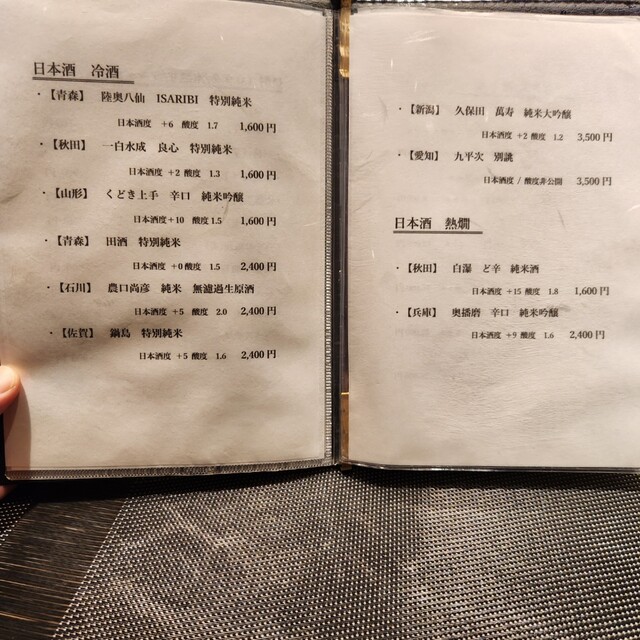 日本酒 冷酒
・【青森】 陸奥八仙 ISARIBI 特別純米
日本酒度 +6 酸度 1.7 1,600円
・【秋田】 一白水成 良心 特別純米
日本酒度 +2 酸度 1.3 1,600円
・【山形】 くどき上手 辛口 純米吟醸
日本酒度+10 酸度1.5 1,600円
・【青森】 田酒 特別純米
日本酒度 +0酸度 1.5 2,400円
・【石川】 農口尚彦 純米 無濾過生原酒
日本酒度 +5 酸度 2.0 2,400円
・【佐賀】 鍋島 特別純米
日本酒度 +5酸度 1.6 2,400円
・【新潟】 久保田 萬寿 純米大吟醸
日本酒度 +2酸度 1.2 3,500円
・【愛知】 九平次 別誂
日本酒度 / 酸度非公開 3,500円
日本酒 熱燗
・【秋田】 白瀑 ど辛 純米酒
日本酒度 +15 酸度 1.8 1,600円
・【兵庫】 奥播磨 辛口 純米吟醸
日本酒度 +9 酸度 1.6 2,400円